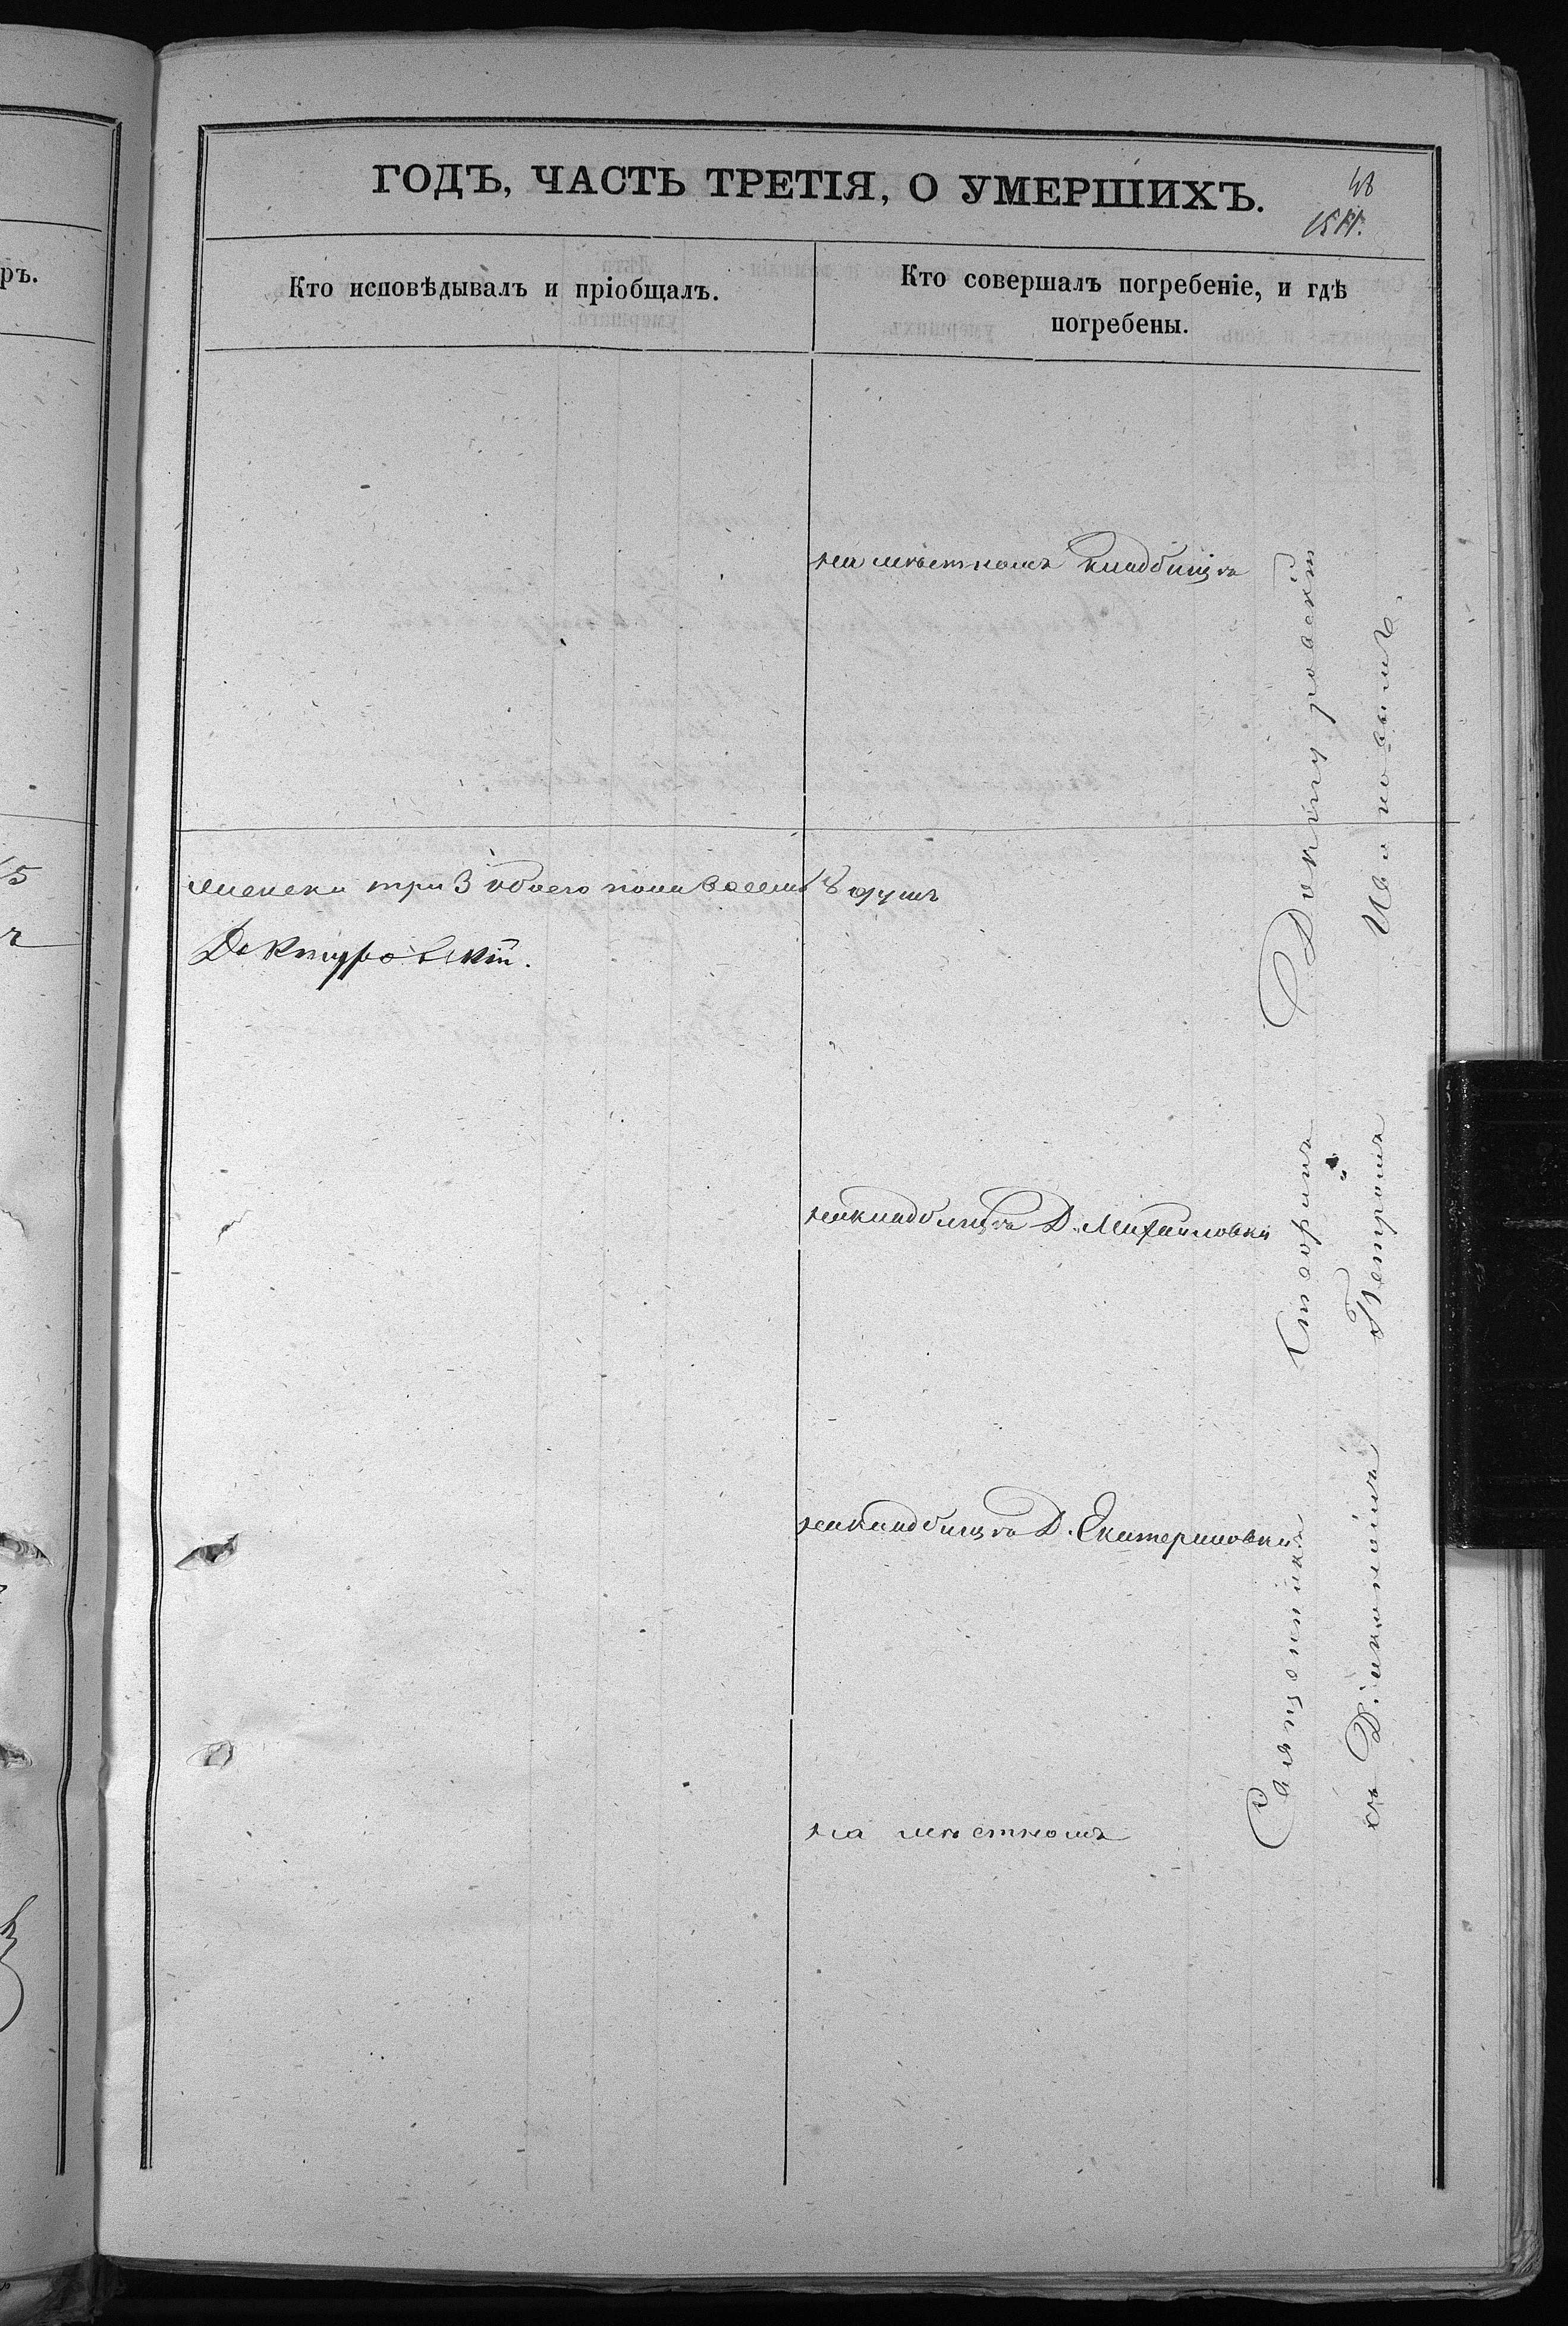 ръ.
15
ГОДЪ, ЧАСТЬ ТРЕТІЯ, О УМЕРШИХЪ.
48
Кто исповѣдывалъ и пріобщалъ.
Кто совершалъ погребеніе, и гдѣ
погребены.
на мѣстномъ кладбищѣ
женска три 3 обоего пола восемь 8 душъ
Доктуровскій.
на кладбищѣ Д. Михайловки
на кладбищѣ Д. Екатериновки
на мѣстномъ
Священникъ Доктуровскій
съ Діакономъ Петромъ Ивановымъ.